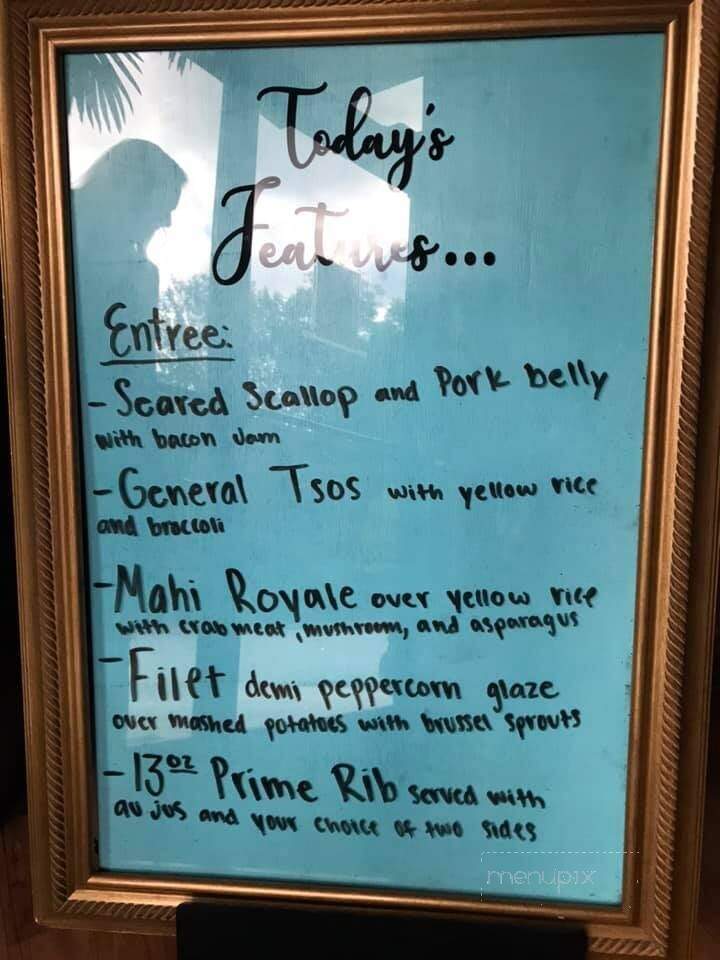 Today's
Features...
Entree:
- Seared Scallop and Pork belly
with bacon Jam
- General Tsos with yellow rice
and broccoli
- Mahi Royale over yellow rice
with crab meat, mushroom, and asparagus
- Filet demi peppercorn glaze
over mashed potatoes with brussel sprouts
- 13oz Prime Rib served with
au jus and your choice of two sides
menupix